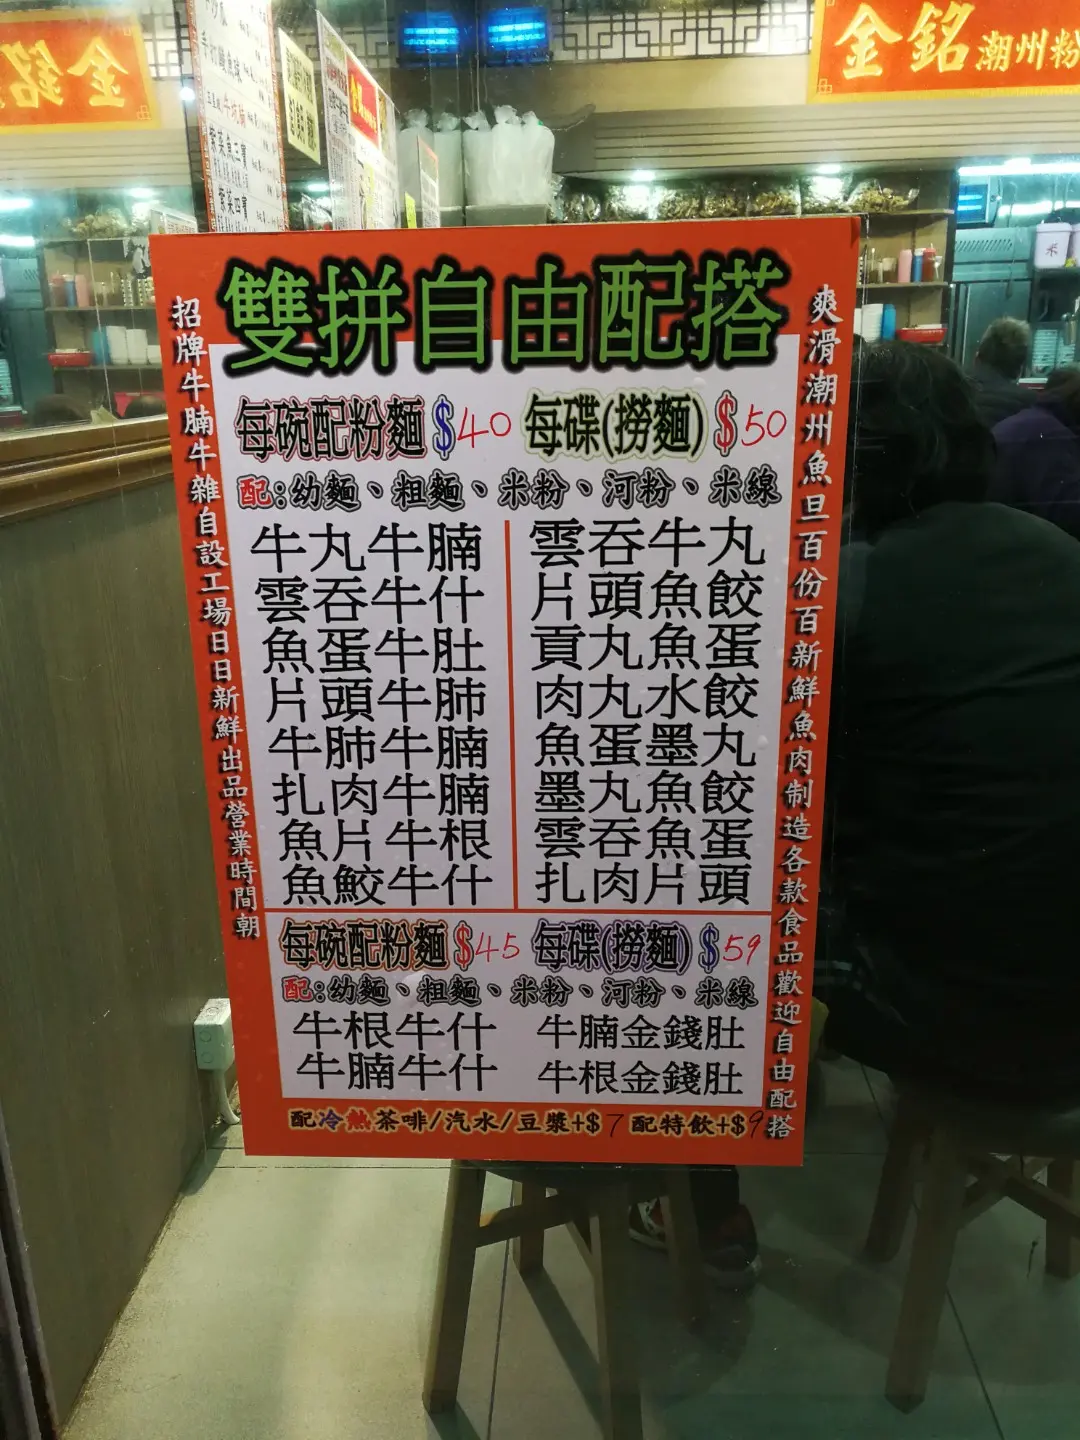 金銘
金銘潮州粉
雙拼自由配搭
招牌牛腩牛雜自設工場日日新鮮出品營業時間朝
爽滑潮州魚旦百份百新鮮魚肉制造各款食品歡迎自由配搭
每碗配粉麵$40 每碟(撈麵)$50
配:幼麵、粗麵、米粉、河粉、米線
牛丸牛腩
雲吞牛什
魚蛋牛肚
片頭牛肺
牛肺牛腩
扎肉牛腩
魚片牛根
魚鮫牛什
雲吞牛丸
片頭魚餃
貢丸魚蛋
肉丸水餃
魚蛋墨丸
墨丸魚餃
雲吞魚蛋
扎肉片頭
每碗配粉麵$45 每碟(撈麵)$59
配:幼麵、粗麵、米粉、河粉、米線
牛根牛什
牛腩牛什
牛腩金錢肚
牛根金錢肚
配冷熱茶啡/汽水/豆漿+$7 配特飲+$9